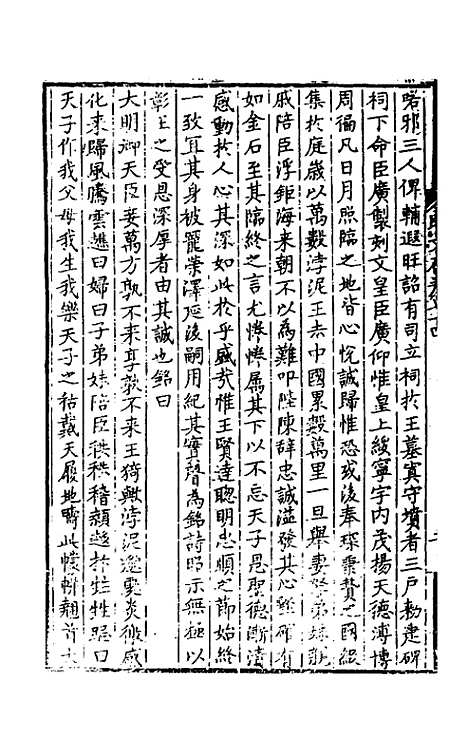 喏邪三人俾輔遐旺詔有司立祠於王墓寘守墳者三戶勑建碑
祠下命臣廣製刻文皇臣廣仰惟皇上綏寧宇内茂揚天德溥博
周徧凡日月照臨之地皆心悅誠歸惟恐或後奉琛秉贄之國絡
集於庭歲以萬數浡泥王去中國累數萬里一旦舉妻孥弟妹親
戚陪臣浮鉅海来朝不以為難叩陛陳辞忠誠溢發其心堅確有
如金石至其臨終之言尤惓惓屬其下以不忘天子恩聖德斯湥
感動扵人心其深如此於乎盛㢤惟王賢達聰明忠順之節始終
一致冝其身被寵榮澤延後嗣用紀其實聲為銘詩昭示無極以
彰王之受恩深厚者由其誠也銘曰
大明御天臣妾萬方孰不来享孰不来王猗歟浡泥邈處炎徼感
化来歸風騰雲趭曰婦曰子弟妹陪臣秩秩稽顙趍扵甡甡跽曰
天子作我父母我生我樂天子之祜戴天履地疇此幬輧翹首